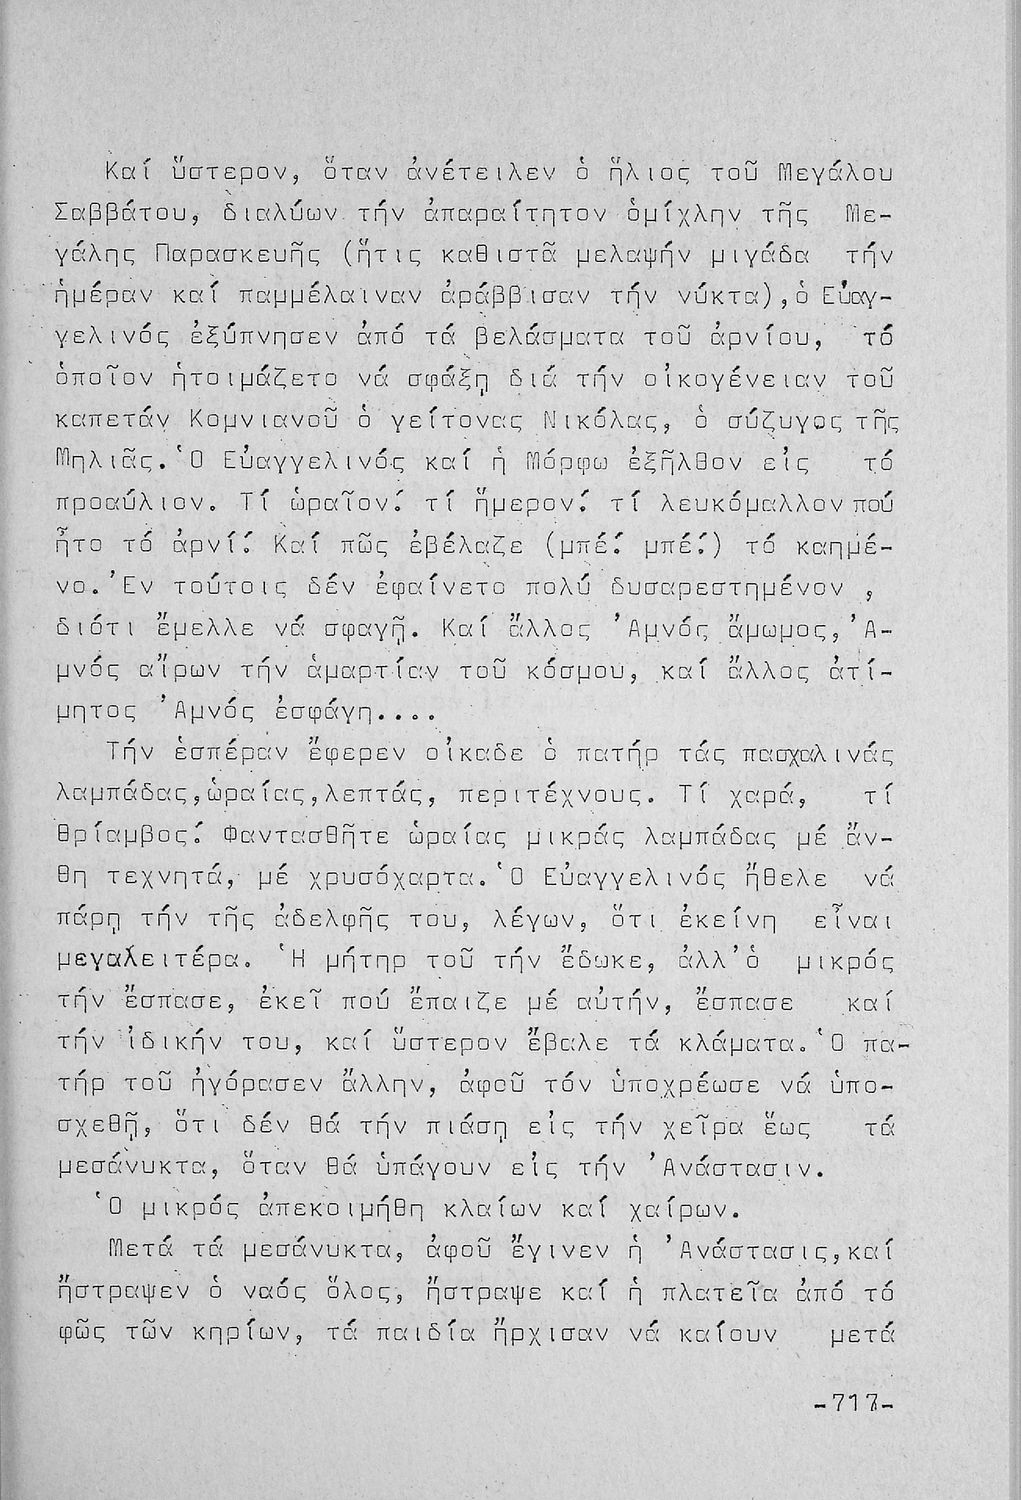 Καί ὕστερον, ὅταν ἀνέτειλεν ὁ ἥλιος τοῦ Μεγάλου
Σαββάτου, διαλύων τήν ἀπαραίτητον ὁμίχλην τῆς Με-
γάλης Παρασκευῆς (ἥτις καθιστᾶ μελαψήν μιγάδα τήν
ἡμέραν καί παμμέλαιναν ἀράββισαν τήν νύκτα),ὁ Εὐαγ-
γελινός ἐξύπνησεν ἀπό τά βελάσματα τοῦ ἀρνίου, τό
ὁποῖον ἡτοιμάζετο νά σφάξῃ διά τήν οἰκογένειαν τοῦ
καπετάν Κομνιανοῦ ὁ γείτονας Νικόλας, ὁ σύζυγος τῆς
Μηλιᾶς. Ὁ Εὐαγγελινός καί ἡ Μόρφω ἐξῆλθον εἰς τό
προαύλιον. Τί ὡραῖον! τί ἥμερον! τί λευκόμαλλον πού
ἦτο τό ἀρνί! Καί πῶς ἐβέλαζε (μπέ! μπέ!) τό καημέ-
νο. Ἐν τούτοις δέν ἐφαίνετο πολύ δυσαρεστημένον ,
διότι ἔμελλε νά σφαγῇ. Καί ἄλλος Ἀμνός ἄμωμος, Ἀ-
μνός αἴρων τήν ἁμαρτίαν τοῦ κόσμου, καί ἄλλος ἀτί-
μητος Ἀμνός ἐσφάγη....
Τήν ἑσπέραν ἔφερεν οἴκαδε ὁ πατήρ τάς πασχαλινάς
λαμπάδας,ὡραίας,λεπτάς, περιτέχνους. Τί χαρά, τί
θρίαμβος! Φαντασθῆτε ὡραίας μικράς λαμπάδας μέ ἄν-
θη τεχνητά, μέ χρυσόχαρτα. Ὁ Εὐαγγελινός ἤθελε νά
πάρῃ τήν τῆς ἀδελφῆς του, λέγων, ὅτι ἐκείνη εἶναι
μεγαλειτέρα. Ἡ μήτηρ τοῦ τήν ἔδωκε, ἀλλ’ὁ μικρός
τήν ἔσπασε, ἐκεῖ πού ἔπαιζε μέ αὐτήν, ἔσπασε καί
τήν ἰδικήν του, καί ὕστερον ἔβαλε τά κλάματα. Ὁ πα-
τήρ τοῦ ἠγόρασεν ἄλλην, ἀφοῦ τόν ὑποχρέωσε νά ὑπο-
σχεθῇ, ὅτι δέν θά τήν πιάσῃ εἰς τήν χεῖρα ἕως τά
μεσάνυκτα, ὅταν θά ὑπάγουν εἰς τήν Ἀνάστασιν.
Ὁ μικρός ἀπεκοιμήθη κλαίων καί χαίρων.
Μετά τά μεσάνυκτα, ἀφοῦ ἔγινεν ἡ Ἀνάστασις,καί
ἤστραψεν ὁ ναός ὅλος, ἤστραψε καί ἡ πλατεῖα ἀπό τό
φῶς τῶν κηρίων, τά παιδία ἤρχισαν νά καίουν μετά
-717-